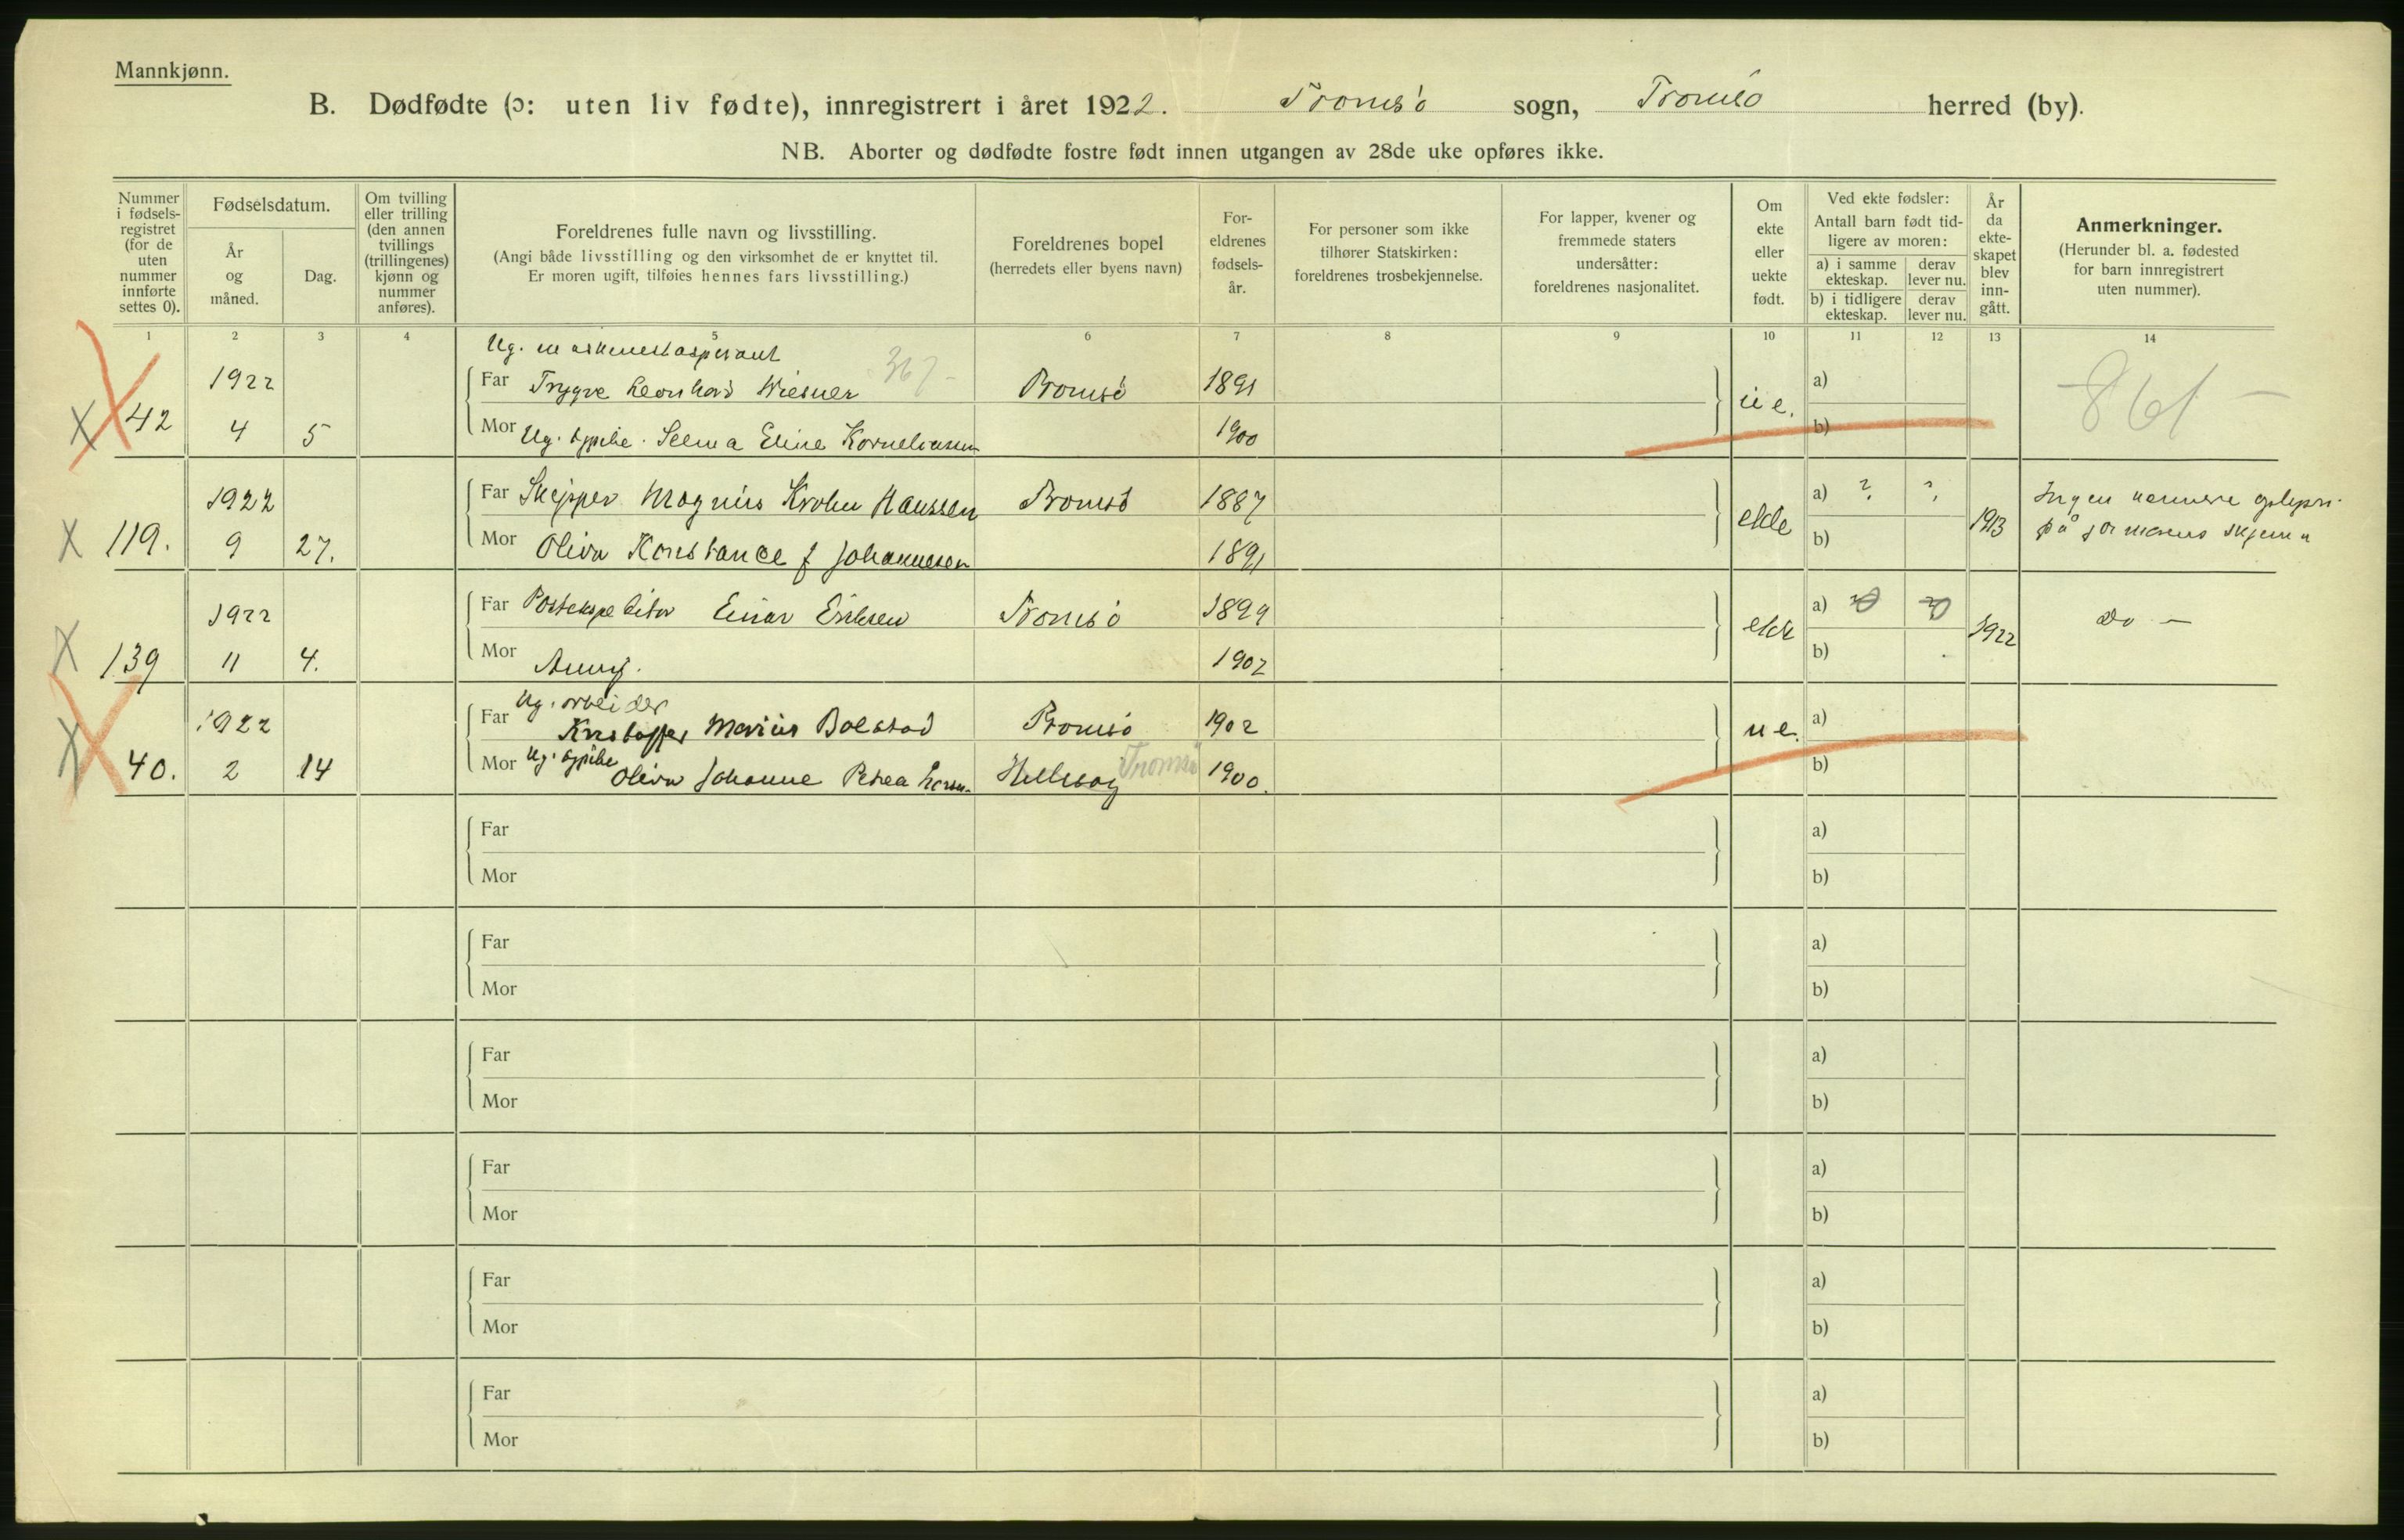 Mannkjønn.
B. Dødfødte (ɔ: uten liv fødte), innregistrert i året 1922. Tromsø sogn, Tromsø herred (by).
NB. Aborter og dødfødte fostre født innen utgangen av 28de uke opføres ikke.
Nummer i fødsels-registret (for de uten nummer innførte settes 0).
Fødselsdatum.
År og måned.
Dag.
Om tvilling eller trilling (den annen tvillings (trillingenes) kjønn og nummer anføres).
Foreldrenes fulle navn og livsstilling.
(Angi både livsstilling og den virksomhet de er knyttet til.
Er moren ugift, tilføies hennes fars livsstilling.)
Foreldrenes bopel
(herredets eller byens navn)
For-eldrenes fødsels-år.
For personer som ikke tilhører Statskirken: foreldrenes trosbekjennelse.
For lapper, kvener og fremmede staters undersåtter: foreldrenes nasjonalitet.
Om ekte eller uekte født.
Ved ekte fødsler:
Antall barn født tid-ligere av moren:
a) i samme ekteskap. derav lever nu.
b) i tidligere ekteskap. derav lever nu.
År da ekte-skapet blev inn-gått.
Anmerkninger.
(Herunder bl. a. fødested for barn innregistrert uten nummer).
1 2 3 4 5 6 7 8 9 10 11 12 13 14
Ug. maskinestaspirant
42 1922 Far Trygve Leonhard Wiesner 367 Tromsø 1891 ue. a) 861
4 5 Mor Ug. Selma Eline Korneliussen 1900 b)
119. 1922 Far Skipper Magnus Krohn Hanssen Tromsø 1887 ekte a) ? ? 1913 Ingen nærmere oplysn.
9 27. Mor Oliva Konstance f Johannesen 1891 b) på jormorens skjema
139 1922 Far Postekspeditør Einar Eriksen Tromsø 1899 ekte a) 1922 do —
11 4. Mor Anny. 1902 b)
Ug. arbeider
40. 1922 Far Kristoffer Marius Bolstad Tromsø 1902 ue. a)
2 14 Mor Ug. Oliva Johanne Petrea Tromsø 1900. b)
Far a)
Mor b)
Far a)
Mor b)
Far a)
Mor b)
Far a)
Mor b)
Far a)
Mor b)
Far a)
Mor b)